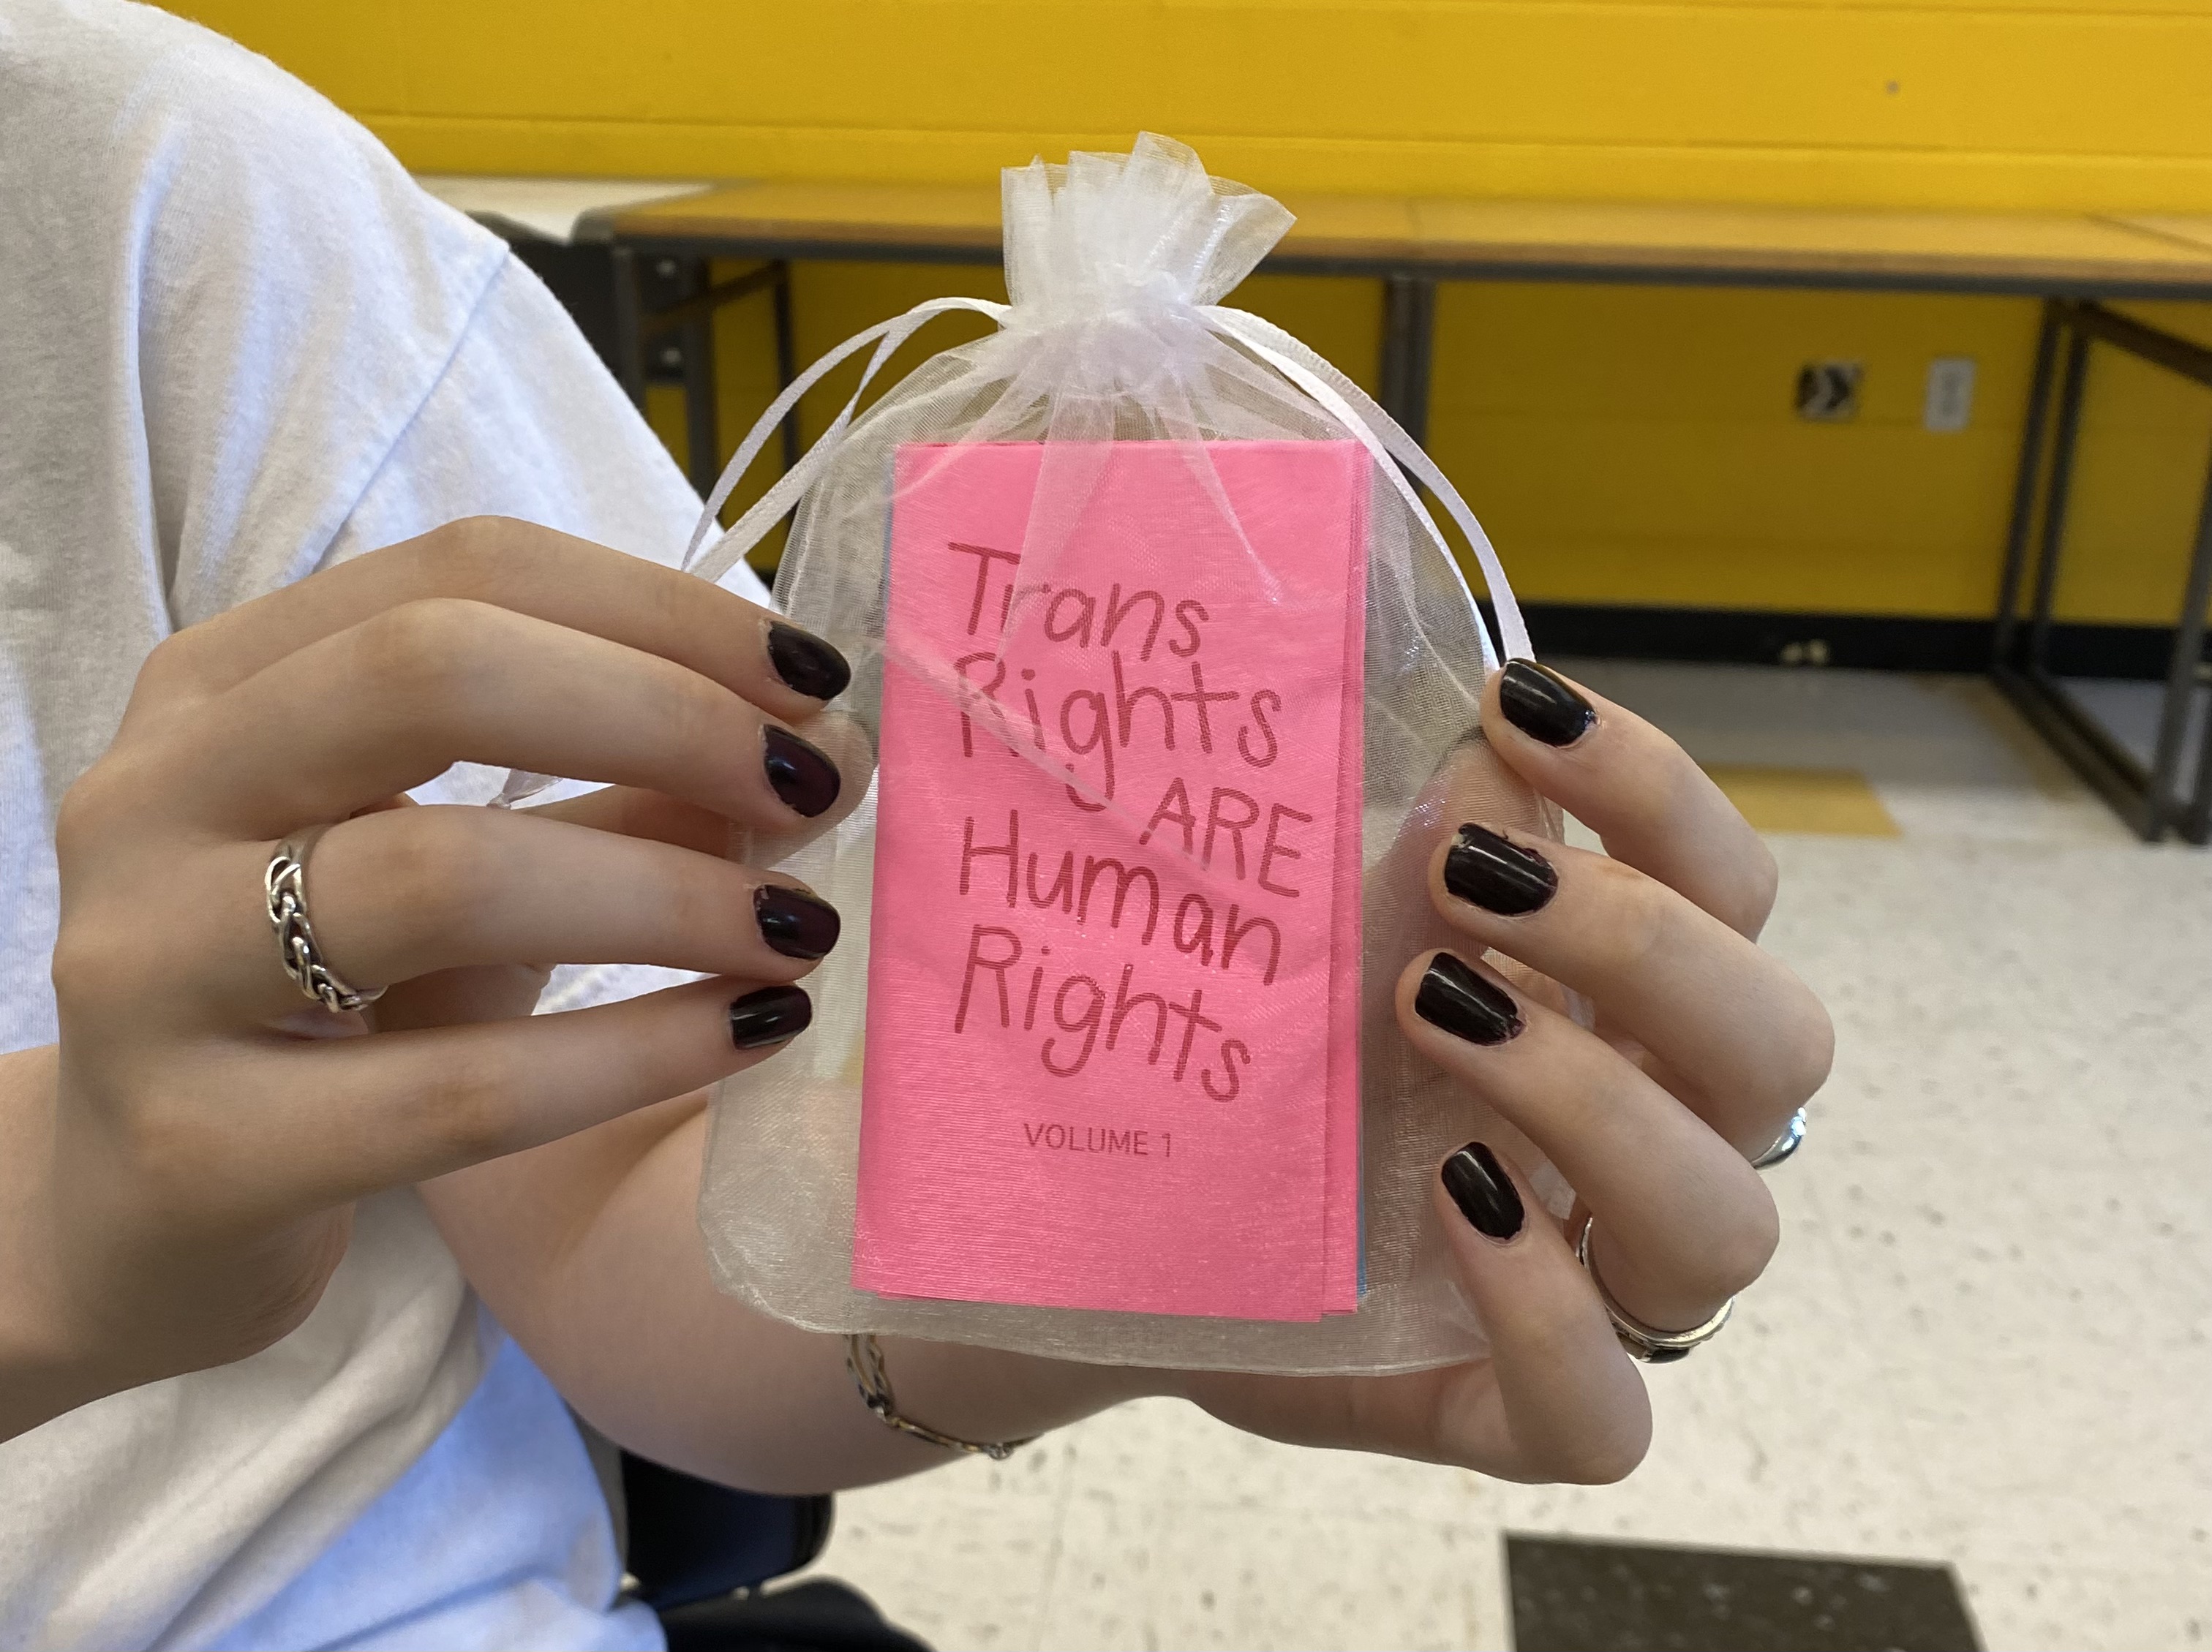 Trans
Rights
ARE
Human
Rights
VOLUME 1